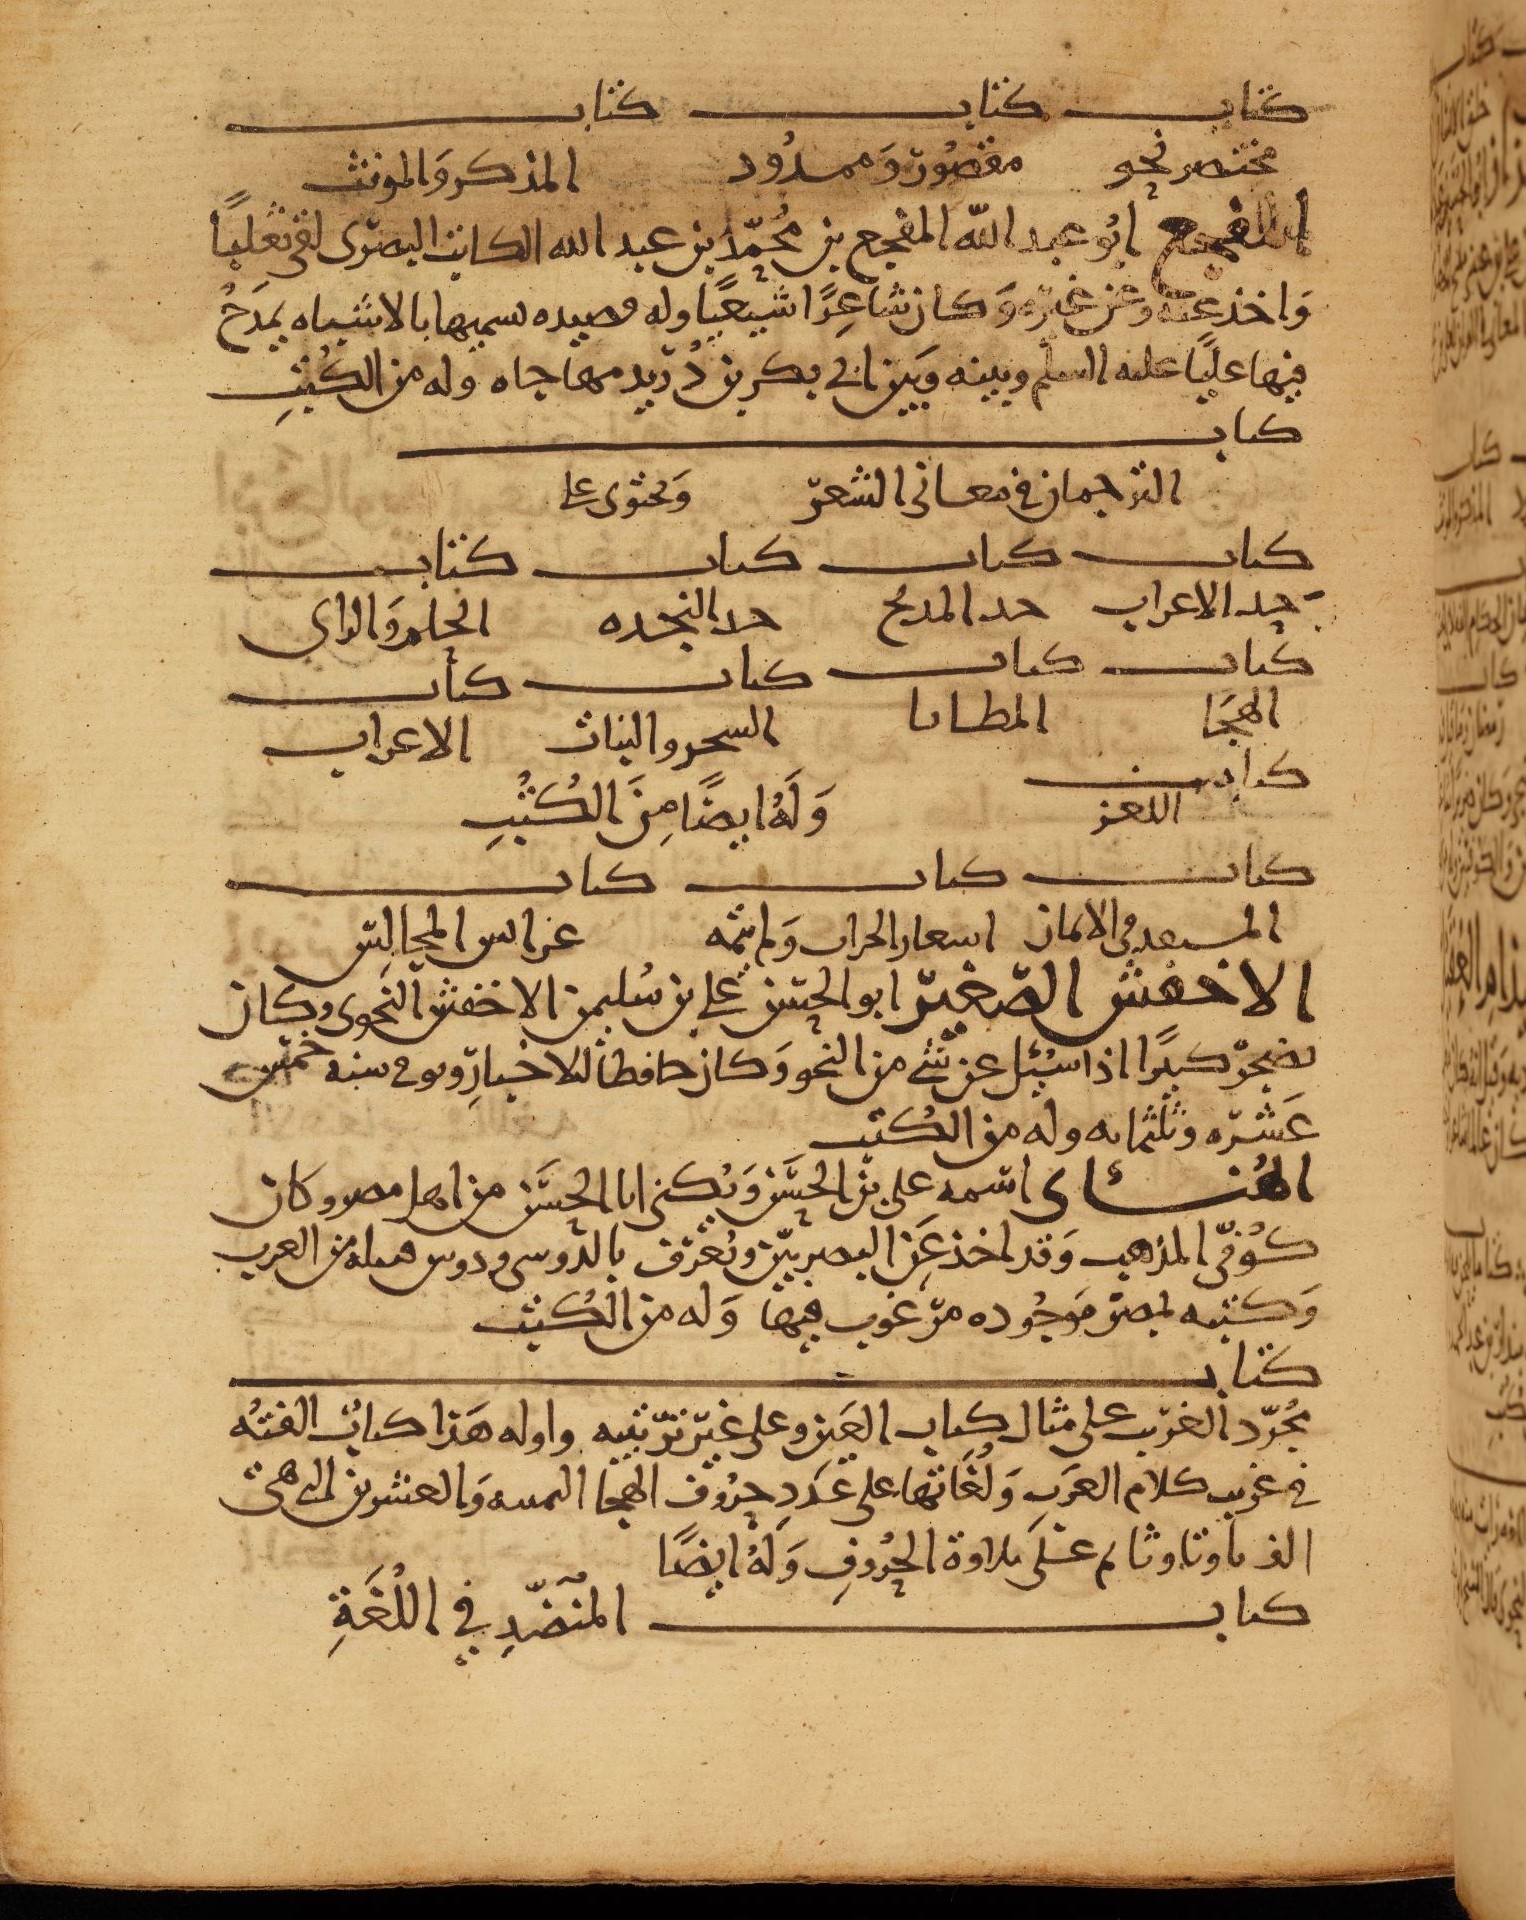 كتاب كتاب كتاب
مختصر نحو مقصور وممدود المذكر والمونث
المفجع ابو عبد الله المفجع بن محمد بن عبد الله الكاتب البصرى لقى ثعلبا
واخذ عنه وعن غيره وكان شاعرا شيعيا وله قصيده سميها بالاشباه يمدح
فيها عليا عليه السلم وبينه وبين ابى بكر بن دريد مهاجاه وله من الكتب
كتاب
الترجمان فى معانى الشعر ويحتوى على
كتاب كتاب كتاب كتاب
حد الاعراب حد المديح حد النجده الحلم والراى
كتاب كتاب كتاب كتاب
الهجا المطايا السحر والنبات الاعراب
كتاب
اللغز وله ايضا من الكتب
كتاب كتاب كتاب
المنقد فى الايمان اسعار الحراب ولم يتمه عرايس المجالس
الاخفش الصغير ابو الحسن على بن سليمن الاخفش النحوى وكان
يضجر كثيرا اذا سئل عن شى من النحو وكان حافظا للاخبار وتوفى سنه خمس
عشره وثلثمايه وله من الكتب
الهنائى اسمه على بن الحسن ويكنى ابا الحسن من اهل مصر وكان
كوفى المذهب وقد اخذ عن البصريين ويعرف بالدوسى ودوس قبيله من العرب
وكتبه بمصر موجوده مرغوب فيها وله من الكتب
كتاب
مجرد الغريب على مثال كتاب العين وعلى غير ترتيبه واوله هذا كتاب الفته
فى غريب كلام العرب ولغاتها على عدد حروف الهجا الثمنيه والعشرين التى هى
الف با وتا وثا ثم على تلاوة الحروف وله ايضا
كتاب المنضد فى اللغة